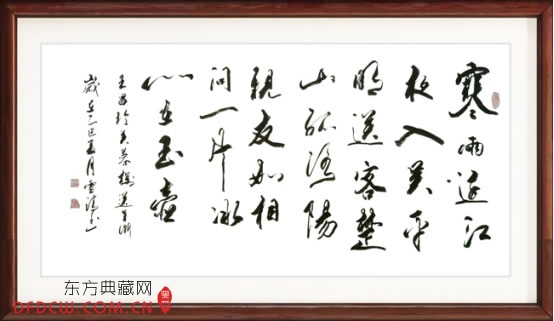 寒雨连江
夜入吴平
明送客楚
山孤洛陽
親友如相
问一片冰
心在玉壺
王昌龄芙蓉樓送辛渐
歲在乙巳夏月雪
东方典藏网
DFDCW.COM.CN